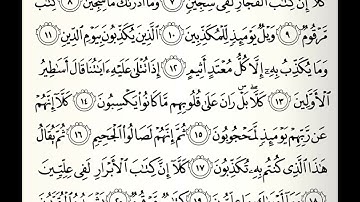 كَلَّا إِنَّ كِتَٰبَ ٱلْفُجَّارِ لَفِى سِجِّينٍ ٧ وَمَآ أَدْرَىٰكَ مَا سِجِّينٌ ٨ كِتَٰبٌ
مَّرْقُومٌ ٩ وَيْلٌ يَوْمَئِذٍ لِّلْمُكَذِّبِينَ ١٠ ٱلَّذِينَ يُكَذِّبُونَ بِيَوْمِ ٱلدِّينِ ١١
وَمَا يُكَذِّبُ بِهِۦٓ إِلَّا كُلُّ مُعْتَدٍ أَثِيمٍ ١٢ إِذَا تُتْلَىٰ عَلَيْهِ ءَايَٰتُنَا قَالَ أَسَٰطِيرُ
ٱلْأَوَّلِينَ ١٣ كَلَّا بَلْ رَانَ عَلَىٰ قُلُوبِهِم مَّا كَانُوا۟ يَكْسِبُونَ ١٤ كَلَّآ إِنَّهُمْ
عَن رَّبِّهِمْ يَوْمَئِذٍ لَّمَحْجُوبُونَ ١٥ ثُمَّ إِنَّهُمْ لَصَالُوا۟ ٱلْجَحِيمِ ١٦ ثُمَّ يُقَالُ
هَٰذَا ٱلَّذِى كُنتُم بِهِۦ تُكَذِّبُونَ ١٧ كَلَّآ إِنَّ كِتَٰبَ ٱلْأَبْرَارِ لَفِى عِلِّيِّينَ